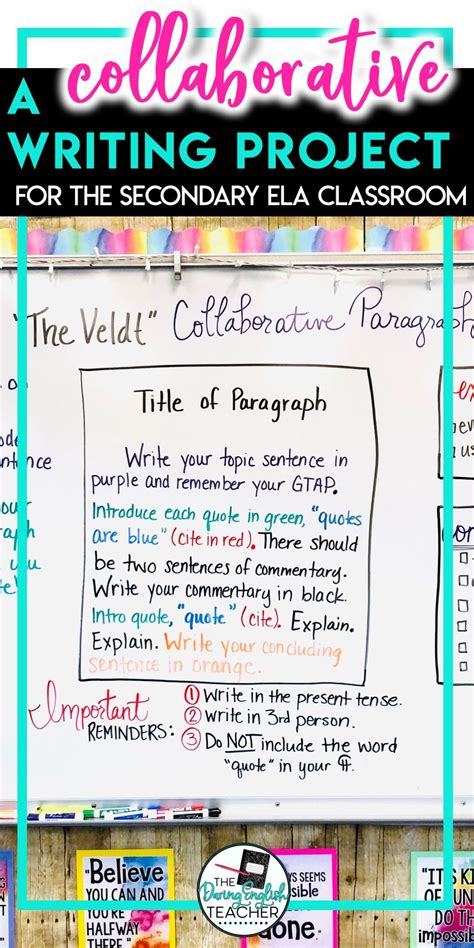 A collaborative
WRITING PROJECT
FOR THE SECONDARY ELA CLASSROOM
"The Veldt" Collaborative Paragraph
Title of Paragraph
Write your topic sentence in
purple and remember your GTAP.
Introduce each quote in green, "quotes
are blue" (cite in red). There should
be two sentences of commentary.
Write your commentary in black.
Intro quote, "quote" (cite). Explain.
Explain. Write your concluding
sentence in orange.
Important
REMINDERS:
① Write in the present tense.
② Write in 3rd person.
③ Do NOT include the word
"quote" in your ¶.
"Believe
YOU CAN AND
YOU'RE
HALFWAY
THERE"
THE
Daring English
TEACHER
SEEMS
done
"IT'S
OF
DO THE
impossible